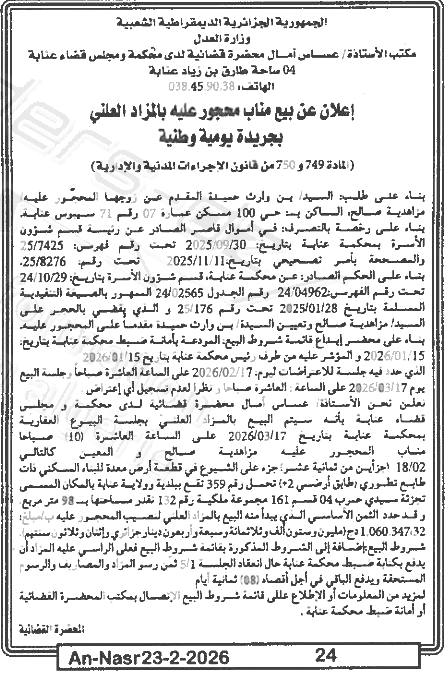 الجمهورية الجزائرية الديمقراطية الشعبية
وزارة العدل
مكتب الأستاذة/ عساس أمال محضرة قضائية لدى محكمة ومجلس قضاء عنابة
04 ساحة طارق بن زياد عنابة
الهاتف: 038.45.90.38
إعلان عن بيع مناب محجور عليه بالمزاد العلني
بجريدة يومية وطنية
(المادة 749 و 750 من قانون الإجراءات المدنية والإدارية)
بناء على طلب: السيد/ بن وارث حميدة المقدم عن زوجها المحجور عليه:
مزاهدية صالح، الساكن بـ: حي 100 مسكن عمارة 07 رقم 71 سيبوس عنابة.
بناء على رخصة بالتصرف: في أموال قاصر الصادر عن رئيسة قسم شؤون
الأسرة بمحكمة عنابة بتاريخ: 2025/09/30 تحت رقم فهرس: 25/7425
والمصححة بأمر تصحيحي بتاريخ: 2025/11/11 تحت رقم: 25/8276.
بناء على الحكم الصادر: عن محكمة عنابة، قسم شؤون الأسرة بتاريخ: 24/10/29
تحت رقم الفهرس: 24/04962 رقم الجدول 24/02565 الممهور بالصيغة التنفيذية
المسلمة بتاريخ 2025/01/28 تحت رقم 25/176 و الذي يقضي بالحجر على
السيد/ مزاهدية صالح وتعيين السيدة/ بن وارث حميدة مقدما على المحجور عليه.
بناء على محضر إيداع قائمة شروط البيع: المودعة بأمانة ضبط محكمة عنابة بتاريخ:
2026/01/15 و المؤشر عليه من طرف رئيس محكمة عنابة بتاريخ 2026/01/15
الذي حدد فيه جلسة للاعتراضات ليوم: 2026/02/17 على الساعة العاشرة صباحا وجلسة البيع
يوم 2026/03/17 على الساعة: العاشرة صباحا و نظرا لعدم تسجيل أي إعتراض.
نعلن نحن الأستاذة/ عساس أمال محضرة قضائية لدى محكمة و مجلس
قضاء عنابة بأنه سيتم البيع بالمزاد العلني بجلسة البيوع العقارية
بمحكمة عنابة بتاريخ 2026/03/17 على الساعة العاشرة (10) صباحا
مناب المحجور عليه مزاهدية صالح و المعين كالتالي
18/02 اجزأين من ثمانية عشر: جزء على الشيوع في قطعة أرض معدة للبناء السكني ذات
طابع تطوري (طابق أرضي +2) تحمل رقم 359 تقع ببلدية وولاية عنابة بالمكان المسمى
تجزئة سيدي حمرب 04 قسم 161 مجموعة ملكية رقم 132 تقدر مساحتها بـ 98 متر مربع.
و قد حدد الثمن الأساسي الذي يبدأ منه البيع بالمزاد العلني لنصيب المحجور عليه بـ/مبلغ
1.060.347,32 دج (مليون وستون ألف وثلاثمائة وسبعة وأربعون دينار جزائري وإثنان وثلاثون سنتيم).
شروط البيع: إضافة إلى الشروط المذكورة بقائمة شروط البيع فعلى الراسي عليه المزاد أن
يدفع بكتابة ضبط محكمة عنابة حال انعقاد الجلسة 5/1 ثمن رسو المزاد والمصاريف والرسوم
المستحقة ويدفع الباقي في أجل أقصاه (08) ثمانية أيام
لمزيد من المعلومات أو الإطلاع على قائمة شروط البيع الإتصال بمكتب المحضرة القضائية
أو أمانة ضبط محكمة عنابة .
المحضرة القضائية
An-Nasr23-2-2026 24